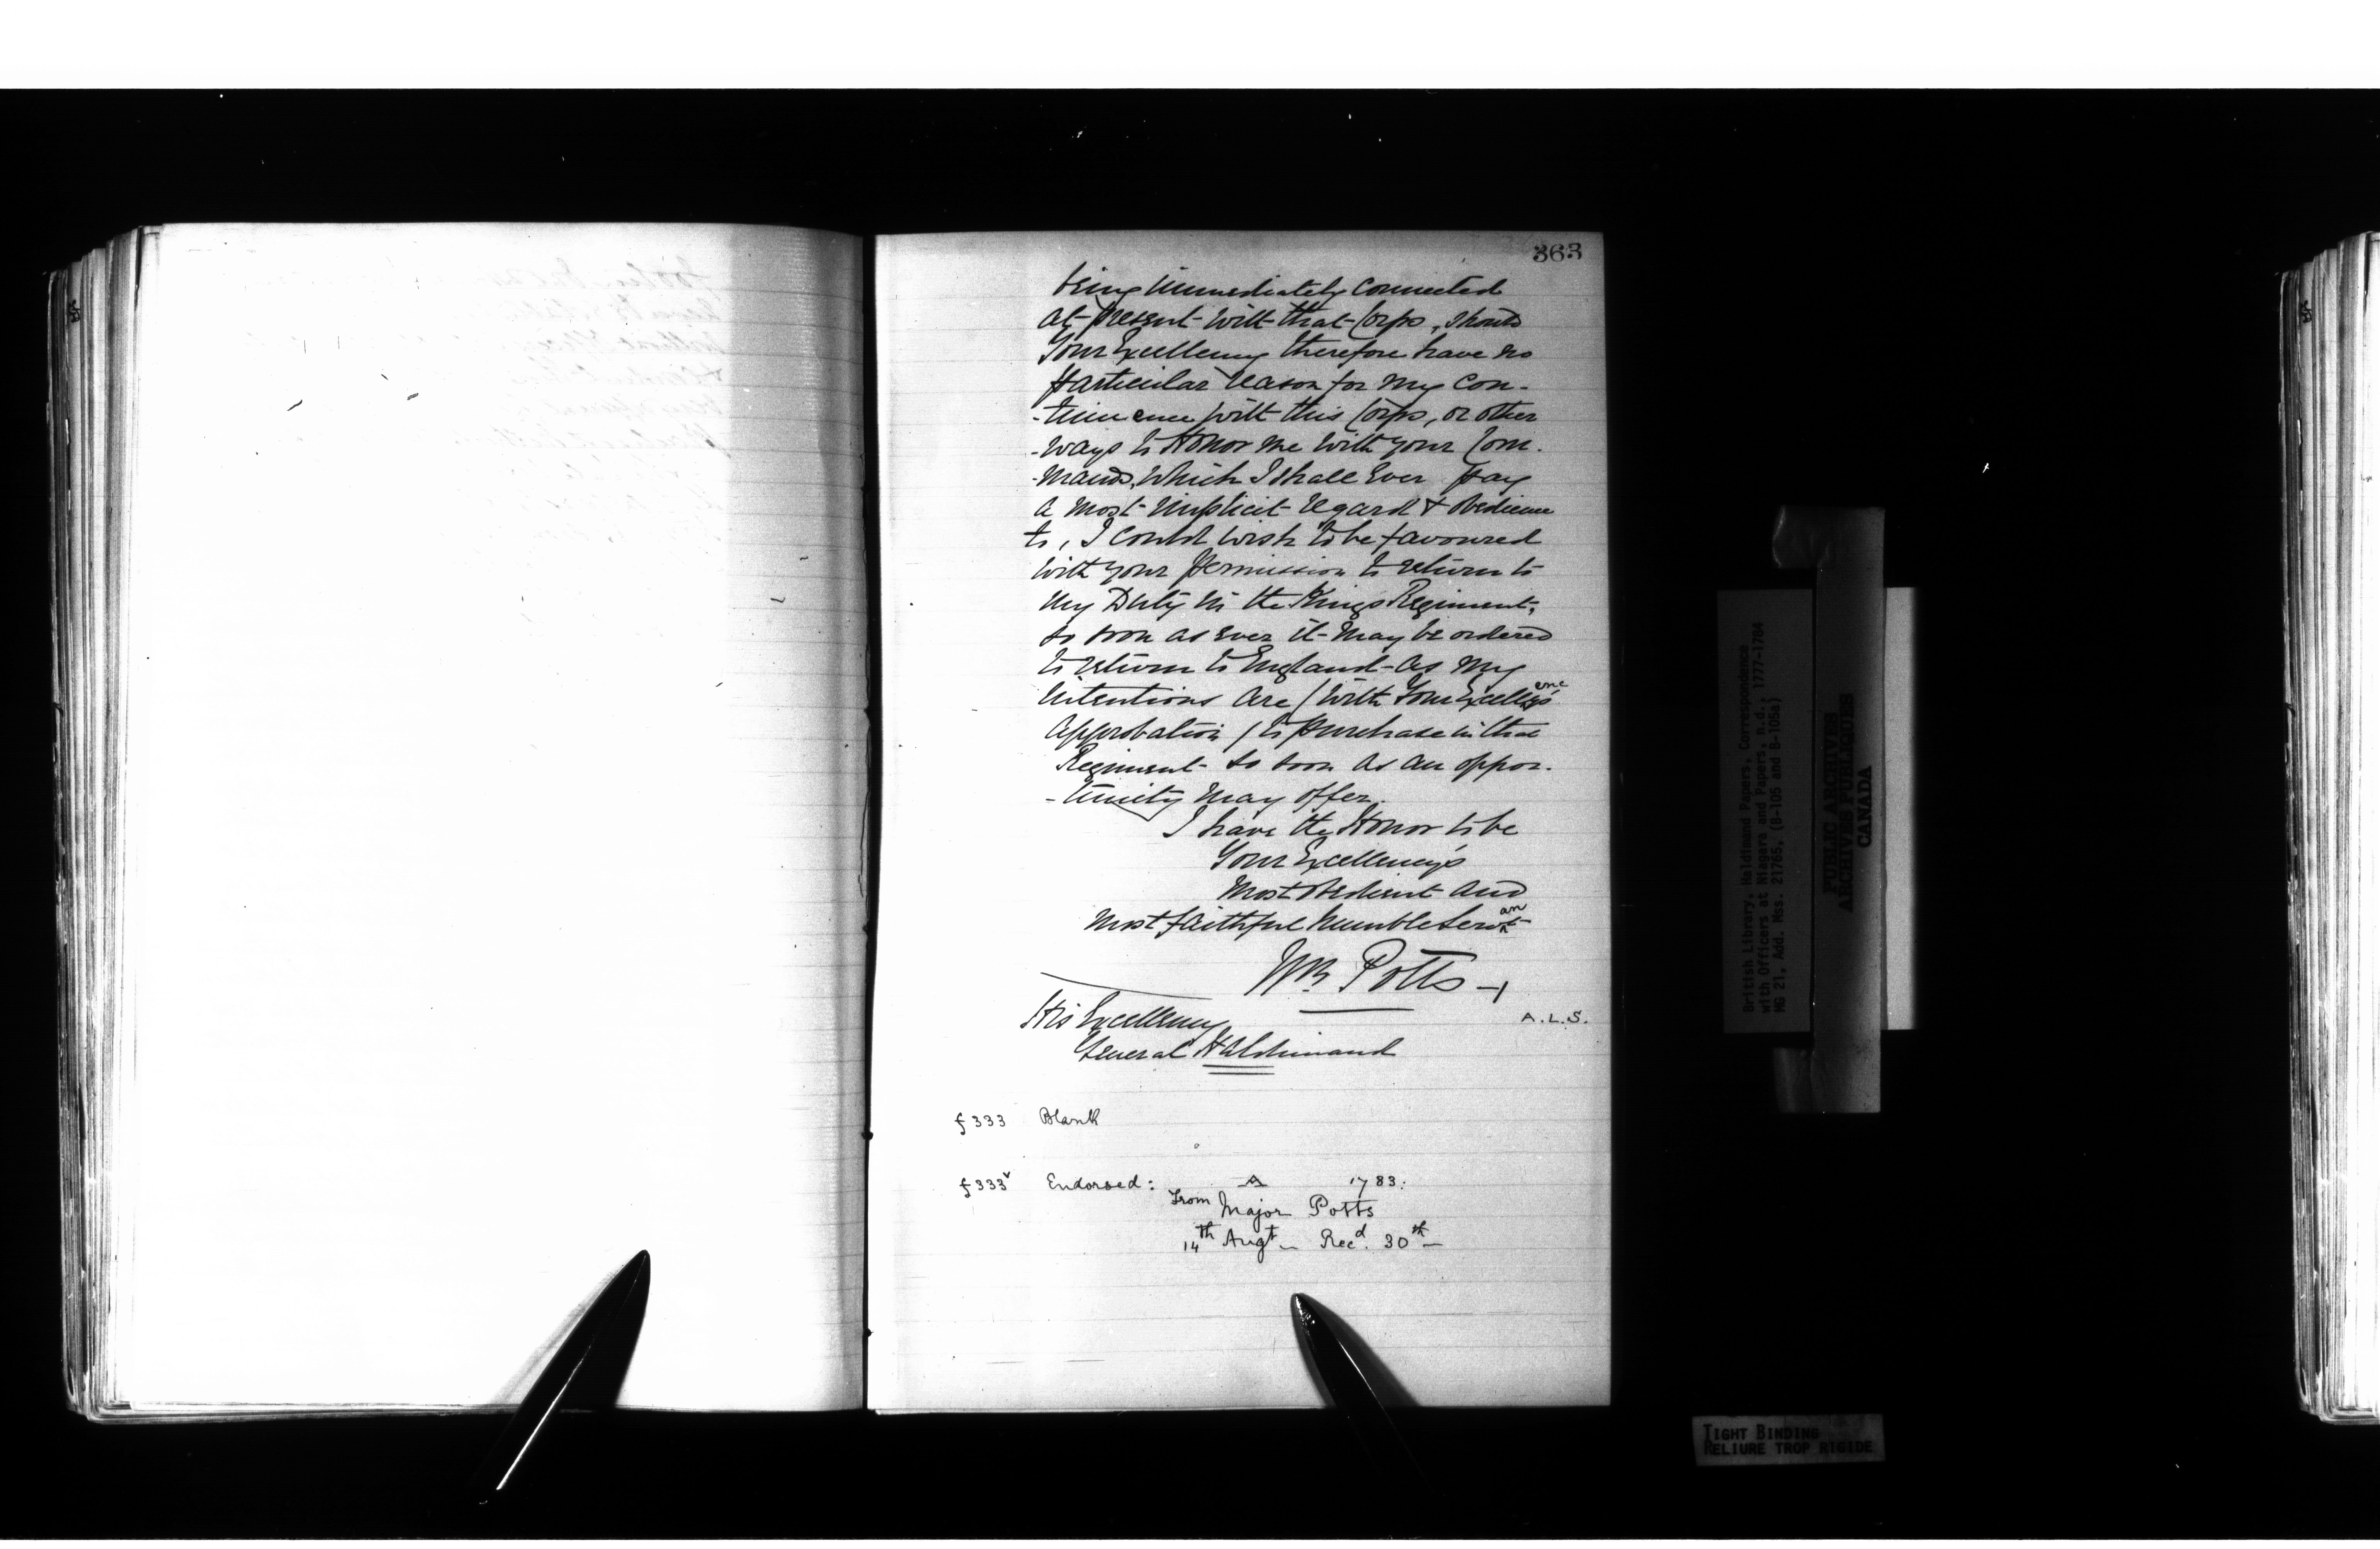 363
being immediately connected
at present with that Corps, should
Your Excellency therefore have no
particular reason for my con-
-tinuence with this Corps, or other
-ways to Honor me with your Com-
-mands, which I shall Ever pay
a most implicit regard & obedience
to, I could wish to be favoured
with your Permission to return to
my Duty in the Kings Regiment,
so soon as ever it may be ordered
to return to England - as my
intentions are / with Your Excellency's
approbation / to purchase in that
Regiment so soon as an oppor-
-tunity may offer.
I have the Honor to be
Your Excellency's
Most obedient and
most faithful humble Servant
Wm. Potts
A.L.S.
His Excellency
General Haldimand
f 333 Blank
f 333v Endorsed: A 1783:
From Major Potts
14th Augt - Recd. 30th -
British Library, Haldimand Papers, Correspondence
with Officers at Niagara and Papers, n.d., 1777-1784
MG 21, Add. Mss. 21765, (B-105 and B-106a)
PUBLIC ARCHIVES
ARCHIVES PUBLIQUES
CANADA
TIGHT BINDING
RELIURE TROP RIGIDE